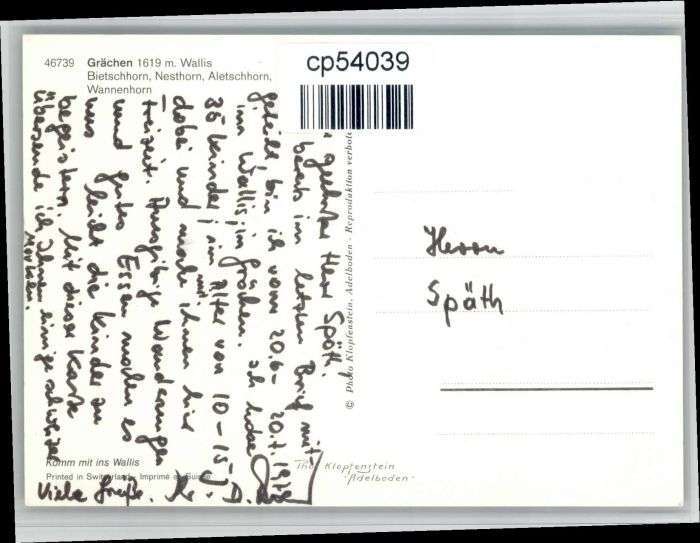 46739 Grächen 1619 m. Wallis
Bietschhorn, Nesthorn, Aletschhorn,
Wannenhorn
cp54039
geehrter Herr Späth!
bereits im letzten Brief mit-
geteilt bin ich vom 20.6.- 20.7. 1979
im Wallis, in Grächen. Ich habe
35 Kinder im Alter von 10-15 J.
dabei und mache mit ihnen hier
Freizeit. Ausgiebige Wanderungen
und gutes Essen machen es
uns leicht die Kinder zu
begeistern. Mit dieser Karte
übersende ich Ihnen einige
Marken.
Viele Grüße.
Komm mit ins Wallis
Printed in Switzerland - Imprimé en Suisse
© Photo Klopfenstein, Adelboden - Reproduktion verboten
Herrn
Späth
Photo Klopfenstein
Adelboden